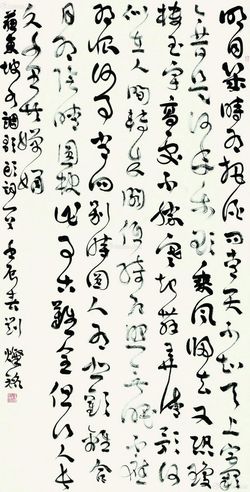 明月幾時有把酒問青天不知天上宮闕
今昔是何年我欲乘風歸去又恐瓊
樓玉宇高處不勝寒起舞弄清影何
似在人間轉朱閣低綺戶照無眠不應
有恨何事長向別時圓人有悲歡離合
月有陰晴圓缺此事古難全但願人長
久千里共嬋娟
蘇東坡水調歌頭詞一首 壬辰春 劉燦銘